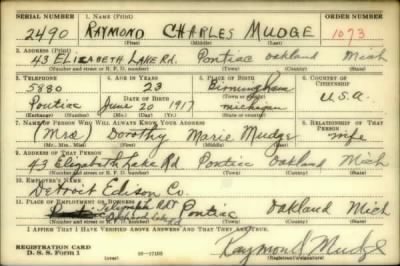 SERIAL NUMBER 1. NAME (Print) ORDER NUMBER
2490 RAYMOND CHARLES MUDGE 1073
(First) (Middle) (Last)
2. ADDRESS (Print)
43 ELIZABETH LAKE RD. Pontiac Oakland Mich
(Number and street or R. F. D. number) (Town) (County) (State)
3. TELEPHONE 4. AGE IN YEARS 5. PLACE OF BIRTH 6. COUNTRY OF CITIZENSHIP
5880 23 Birmingham
DATE OF BIRTH
Pontiac June 20 1917 Michigan U.S.A.
(Exchange) (Number) (Mo.) (Day) (Yr.) (State or country)
7. NAME OF PERSON WHO WILL ALWAYS KNOW YOUR ADDRESS 8. RELATIONSHIP OF THAT PERSON
(Mrs) Dorothy Marie Mudge wife
(Mr., Mrs., Miss) (First) (Middle) (Last)
9. ADDRESS OF THAT PERSON
43 Elizabeth Lake Rd Pontiac Oakland Mich
(Number and street or R. F. D. number) (Town) (County) (State)
10. EMPLOYER'S NAME
Detroit Edison Co.
11. PLACE OF EMPLOYMENT OR BUSINESS
Telegraph Rd Pontiac Oakland Mich
(Number and street or R. F. D. number) (Town) (County) (State)
I AFFIRM THAT I HAVE VERIFIED ABOVE ANSWERS AND THAT THEY ARE TRUE.
REGISTRATION CARD Raymond Mudge
D. S. S. FORM 1 (over) 16—17105 (Registrant's signature)